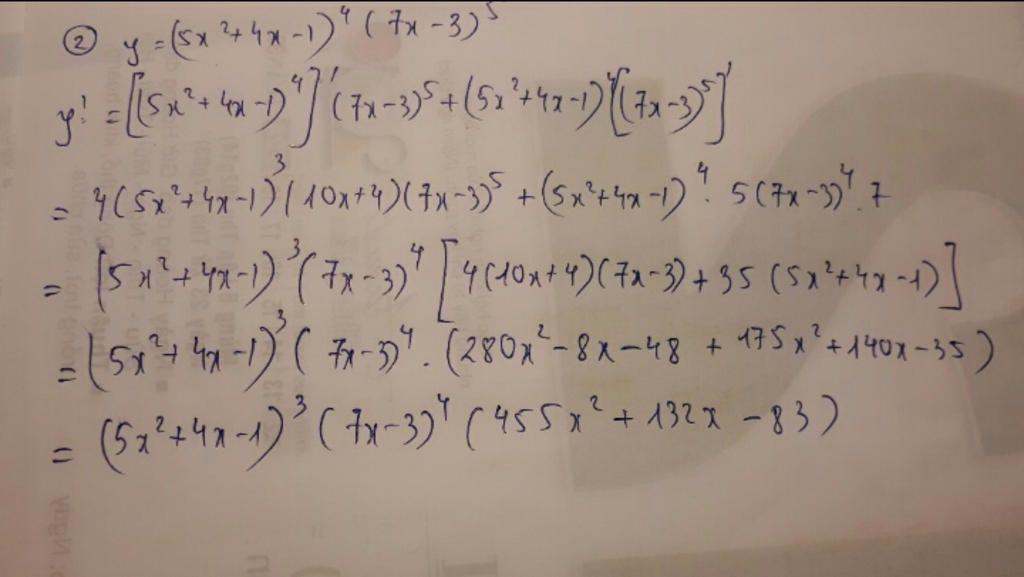 ② y = (5x² + 4x - 1)⁴ (7x - 3)⁵
y' = [(5x² + 4x - 1)⁴]' (7x - 3)⁵ + (5x² + 4x - 1)⁴ [(7x - 3)⁵]'
= 4(5x² + 4x - 1)³ (10x + 4)(7x - 3)⁵ + (5x² + 4x - 1)⁴ . 5(7x - 3)⁴ . 7
= (5x² + 4x - 1)³ (7x - 3)⁴ [4(10x + 4)(7x - 3) + 35 (5x² + 4x - 1)]
= (5x² + 4x - 1)³ (7x - 3)⁴ . (280x² - 8x - 48 + 175x² + 140x - 35)
= (5x² + 4x - 1)³ (7x - 3)⁴ (455x² + 132x - 83)